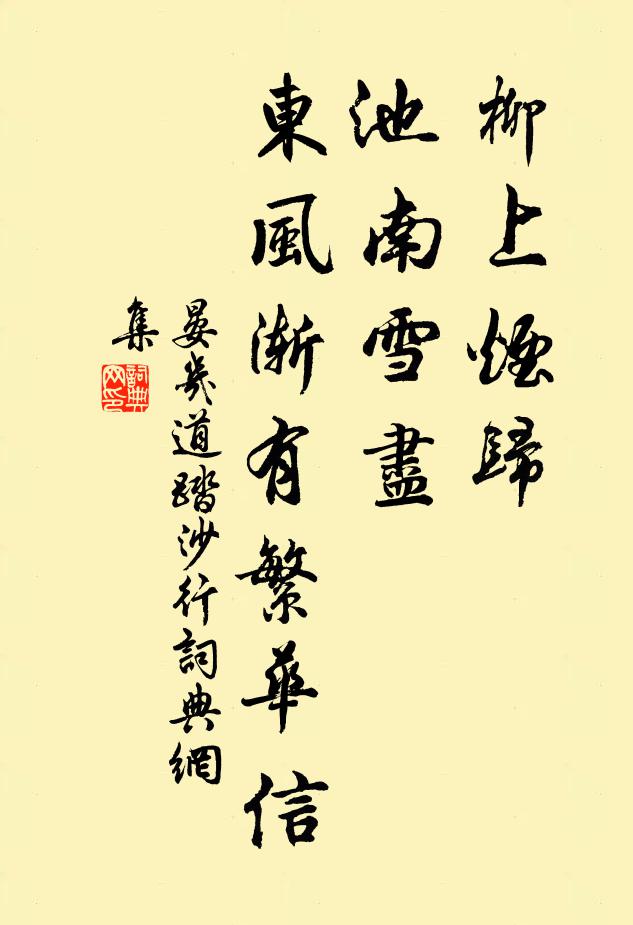 柳上煙歸
池南雪盡
東風漸有繁華信
晏幾道踏沙行詞典網
集
詞典
网印